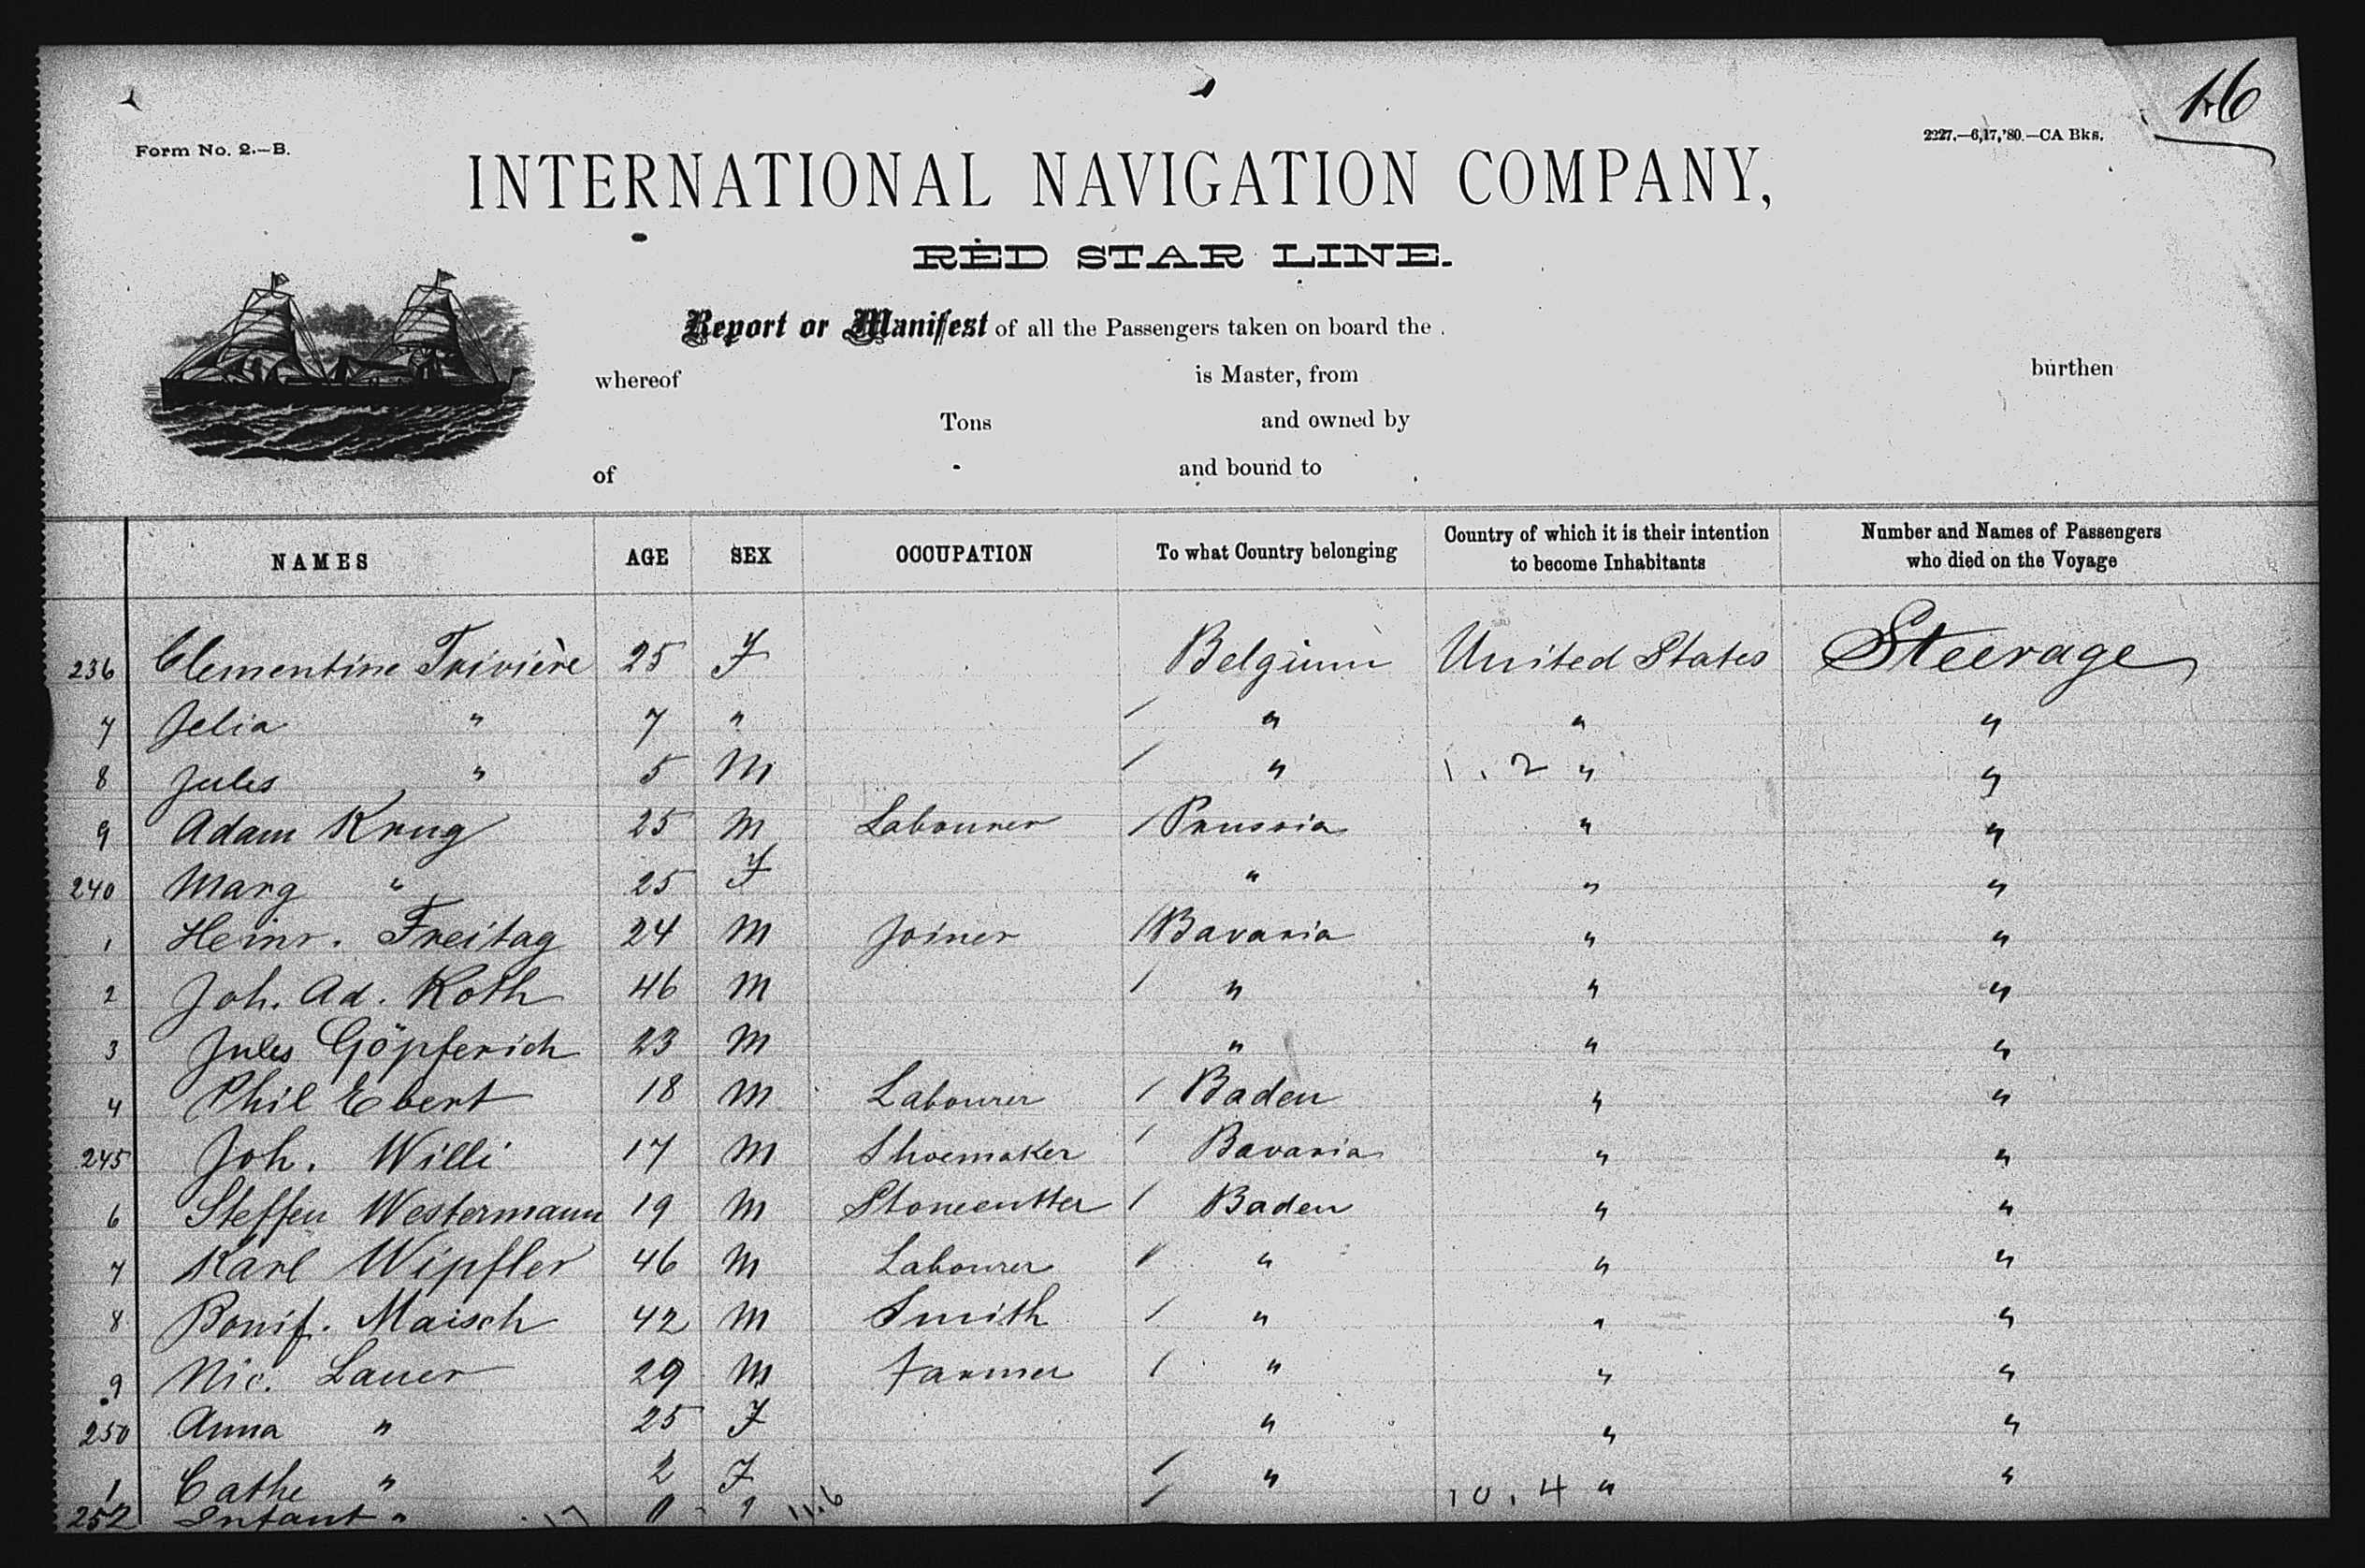 16
Form No. 2.—B.
2227.—6,17,'80.—CA Bks.
INTERNATIONAL NAVIGATION COMPANY,
RED STAR LINE.
Report or Manifest of all the Passengers taken on board the
whereof is Master, from burthen
Tons and owned by
of and bound to
NAMES AGE SEX OCCUPATION To what Country belonging Country of which it is their intention to become Inhabitants Number and Names of Passengers who died on the Voyage
236 Clementine Trivière 25 F Belgium United States Steerage
7 Jelia " 7 " / " " "
8 Jules " 5 M / " 1.2 " "
9 Adam Krug 25 M Labourer / Prussia " "
240 Marg " 25 F " " "
1 Heinr. Freitag 24 M Joiner / Bavaria " "
2 Joh. Ad. Roth 46 M / " " "
3 Jules Göpferich 23 M " " "
4 Phil Ebert 18 M Labourer / Baden " "
245 Joh. Willi 17 M Shoemaker / Bavaria " "
6 Steffen Westermann 19 M Stonecutter / Baden " "
7 Karl Wipfler 46 M Labourer / " " "
8 Bonif. Maisch 42 M Smith / " " "
9 Nic. Lauer 29 M Farmer / " " "
250 Anna " 25 F " " "
1 Cathe " 2 F / " 10.4 " "
252 Infant " 11.6 /